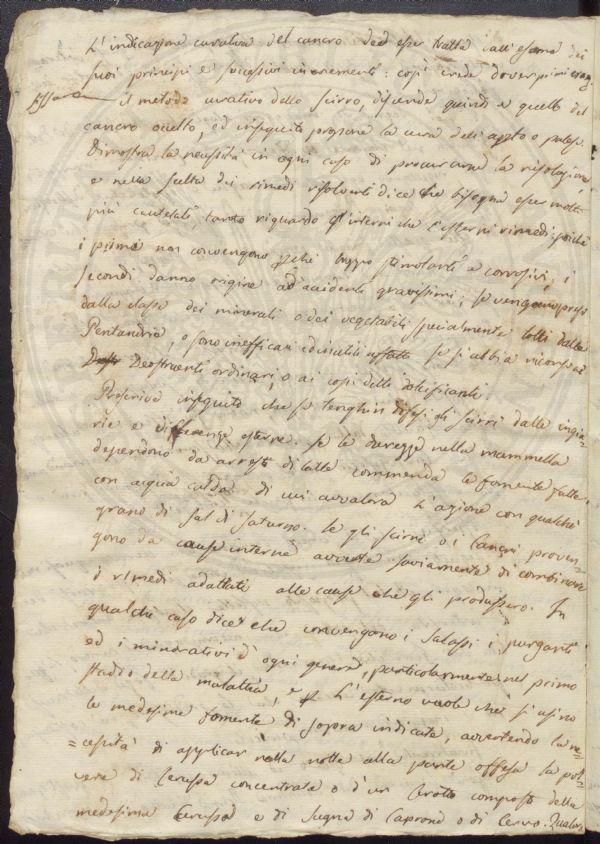 L'indicazione curativa del cancro deve esser tratta dall'esame dei
suoi principj e successivi incrementi: così crede doversi
il metodo curativo dello scirro, discende quindi a quello del
cancro occulto, ed inseguito propone la cura dell'aperto o palese.
Dimostra la necessità in ogni caso di procurarne la risoluzione
e nella scelta dei rimedj risolventi dice che bisogna esser molto
più cautelati tanto riguardo gl'interni che l'esterni rimedj: poichè
i primi non convengono perchè troppo stimolanti e corrosivi, i
secondi danno origine ad accidenti gravissimi, se vengono presi
dalla classe dei minerali o dei vegetabili specialmente tolti dalla
Pentandria, o sono inefficaci ed inutili affatto se si abbia ricorso ai
Deostruenti ordinarj, o ai così detti dolcificanti.
Prescrive inseguito che si tenghin difesi gli scirri dalle ingiu-
rie e esterne. Se le durezze nella mammella
dependono da arresto di latte commenda le fomente fatte
con acqua calda di cui avvalora l'azione con qualche
grano di sal di saturno. Se gli scirri o i Cancri proven-
gono da cause interne avverte saviamente di combinare
i rimedj adattati alle cause che gli produssero. In
qualche caso dice che convengono i salassi i purganti
ed i minorativi d'ogni genere, particolarmente nel primo
stadio della malattia, e all'esterno vuole che si usino
le medesime fomente di sopra indicate, avvertendo la ne-
=cessità di applicar nella notte alla parte offesa la pol-
vere di Cerussa concentrata o d'un Cerotto composto della
medesima Cerussa e di Sugna di Caprone o di Cervo. Qualora